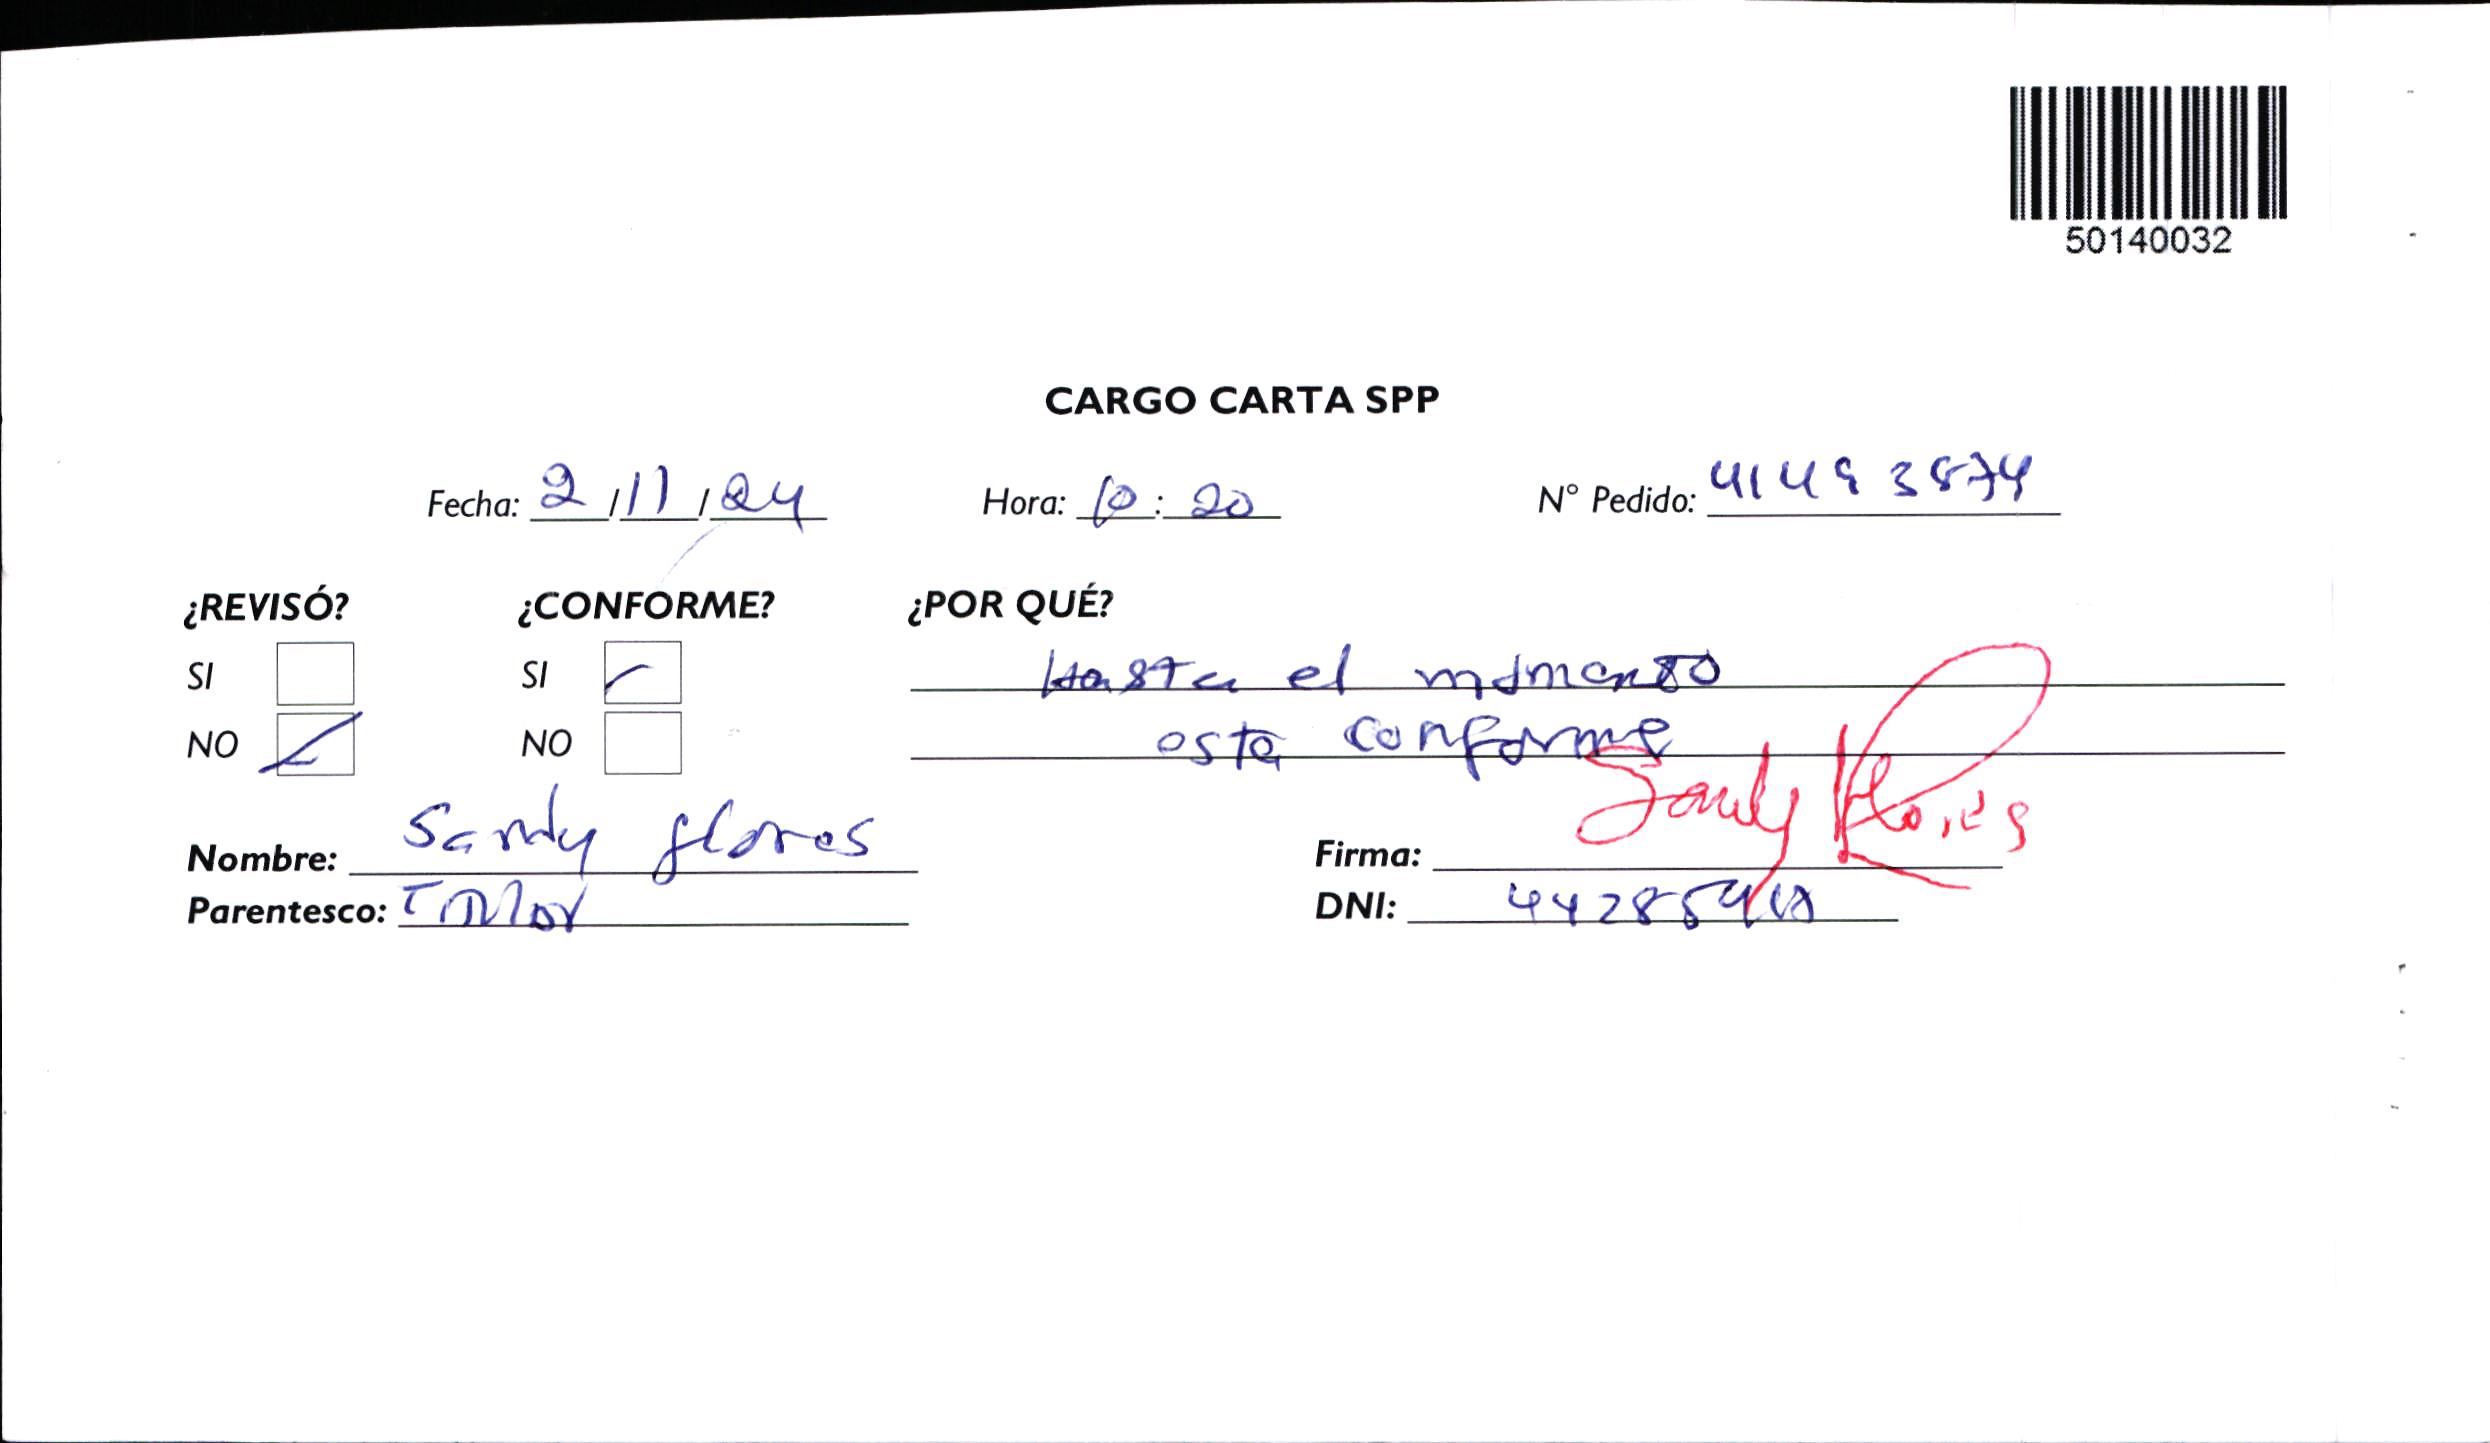 50140032
CARGO CARTA SPP
Fecha: 2/11/24 Hora: 10:20 N° Pedido: 41493874
¿REVISÓ? ¿CONFORME? ¿POR QUÉ?
SI SI Hasta el momento
NO NO esta conforme
Nombre: Sandy flores
Firma: Sandy Flores
Parentesco:
DNI: